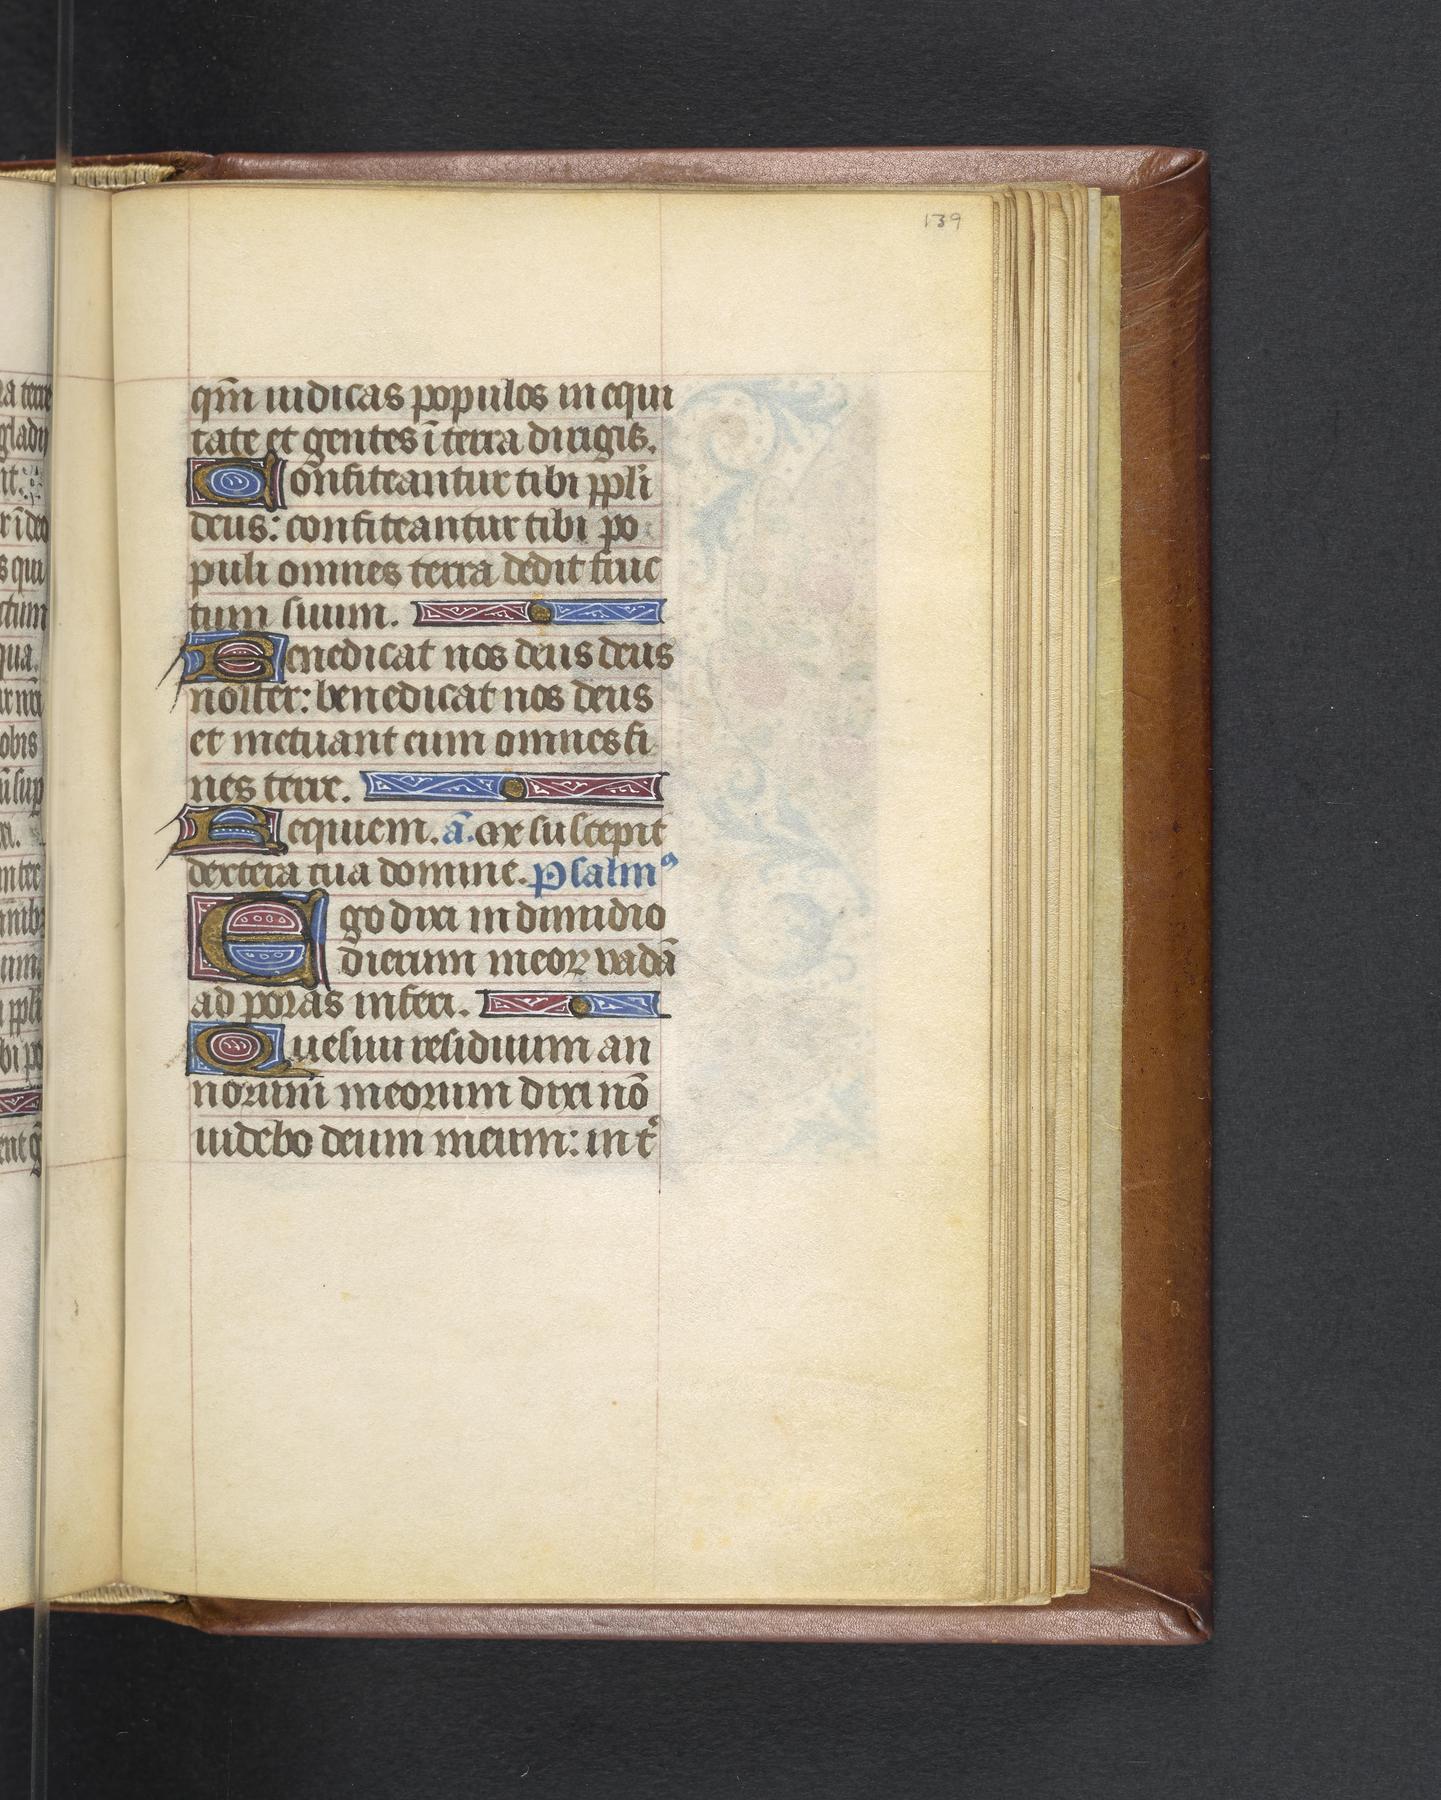 139
qm̄ iudicas populos in equi
tate et gentes ī terra dirigis.
Confiteantur tibi ppl'i
deus: confiteantur tibi po
puli omnes terra dedit fruc
tum suum.
Benedicat nos deus deus
noster: benedicat nos deus
et metuant eum omnes fi
nes terre.
Requiem. ā. Me suscepit
dextera tua domine. Psalmꝰ
Ego dixi in dimidio
dierum meoꝝ vadā
ad portas inferi.
Quesiui residuum an
norum meorum dixi nō
uidebo deum meum: in t͛